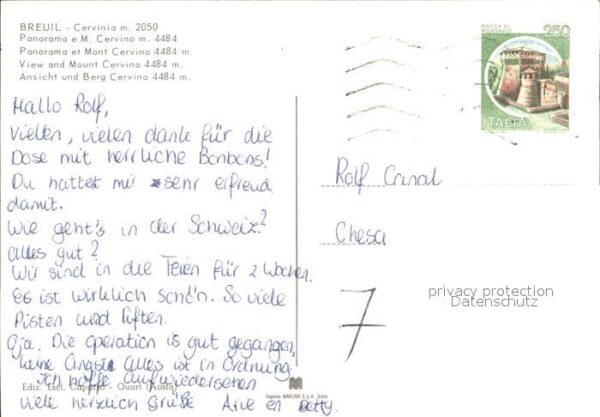 BREUIL - Cervinia m. 2050
Panorama e M. Cervino m. 4484
Panorama et Mont Cervino 4484 m.
View and Mount Cervino 4484 m.
Ansicht und Berg Cervino 4484 m.
Hallo Rolf,
Vielen, vielen dank für die
Dose mit herrliche Bonbons!
Du hattet mir sehr erfreud
damit.
Wie geht's in der Schweiz?
alles gut?
Wir sind in die Feien für 2 Wochen.
Es ist wirklich schön. So viele
Pisten und Liften.
Oja. Die operation is gut gegangen,
keine Angst alles ist in Ordnung
Ich hoffe Aufwiedersehen
viele herzlich Grüße Arie en Betty.
Ediz. Esel. - Quart (Aosta)
ROCCA DI
MONDAVIO
250
ITALIA
Rolf
Chesa
7
privacy protection
Datenschutz